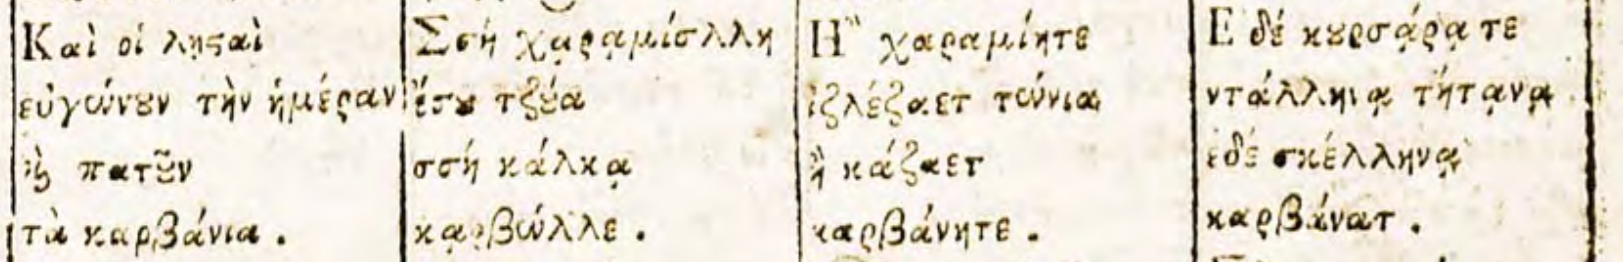 Καὶ οἱ λῃϛαὶ
εὐγώνουν τὴν ἡμέραν
ϗ πατοῦν
τὰ καρβάνια .
Σσὴ χᾳρᾳμίσλλη
ἔσου τζύα
σσὴ κάλκᾳ
κᾳρβώλλε .
Η῎ χαραμίητε
ἰζλέζαετ τώνια
ἢ κάζαετ
καρβάνητε .
Ε δέ κουρσάρᾳ τε
ντάλληνᾳ τήτᾳνᾳ
ἐδέ σκέλληνᾳ
καρβάνατ .